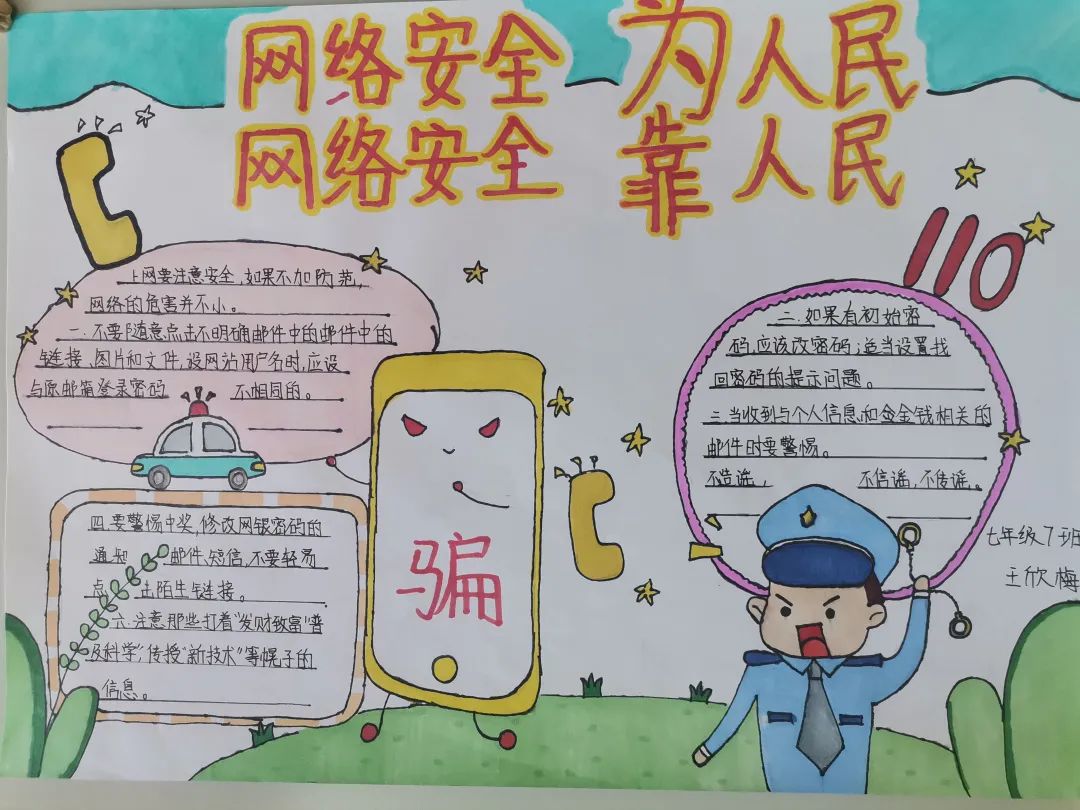 网络安全 为人民
网络安全 靠人民
上网要注意安全，如果不加防范，
网络的危害并不小。
一.不要随意点击不明确邮件中的邮件中的
链接、图片和文件，设网站用户名时，应设
与原邮箱登录密码 不相同的。
四.要警惕中奖，修改网银密码的
通知 邮件、短信，不要轻易
点 击陌生链接。
六.注意那些打着"发财致富"普
及科学"，传授"新技术"等幌子的
信息。
骗
110
二.如果有初始密
码，应该改密码；适当设置找
回密码的提示问题。
三.当收到与个人信息和金金钱相关的
邮件时要警惕。
不造谣， 不信谣，不传谣。
七年级7班
王欣梅